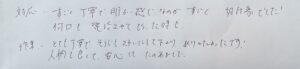 対応 すごく丁寧で明るい感じなのが すごく 好印象でした!
何回も 電話させてもらった時も
作業 とても丁寧で そうじもスムーズにして下さり ありがたかったです!
人柄も良くて、安心して たのめました。